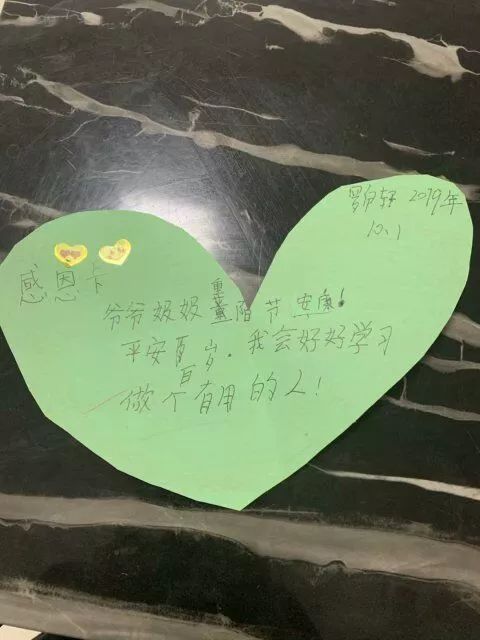 2019年
10.1
感恩卡
爷爷奶奶重阳节安康!
平安百岁.我会好好学习
做个有用的人!